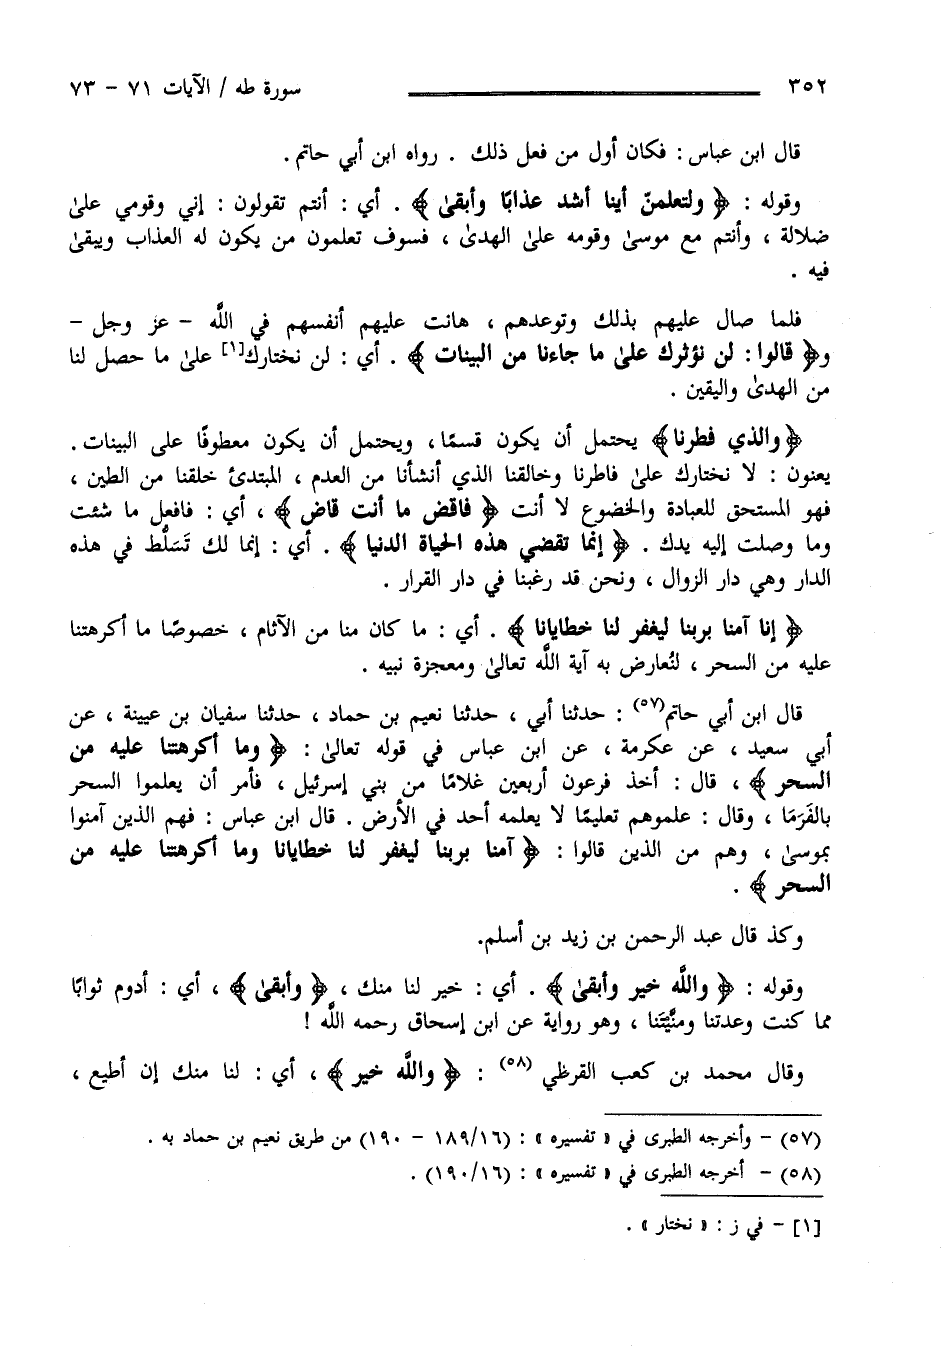 ٣٥٢ سورة طه / الآيات ٧١ - ٧٣
قال ابن عباس : فكان أول من فعل ذلك . رواه ابن أبي حاتم.
وقوله : ﴿ ولتعلمنّ أينا أشد عذابًا وأبقىٰ ﴾ . أي : أنتم تقولون : إني وقومي علىٰ
ضلالة ، وأنتم مع موسىٰ وقومه علىٰ الهدىٰ ، فسوف تعلمون من يكون له العذاب ويبقىٰ
فيه .
فلما صال عليهم بذلك وتوعدهم ، هانت عليهم أنفسهم في اللَّه - عز وجل -
و﴿ قالوا : لن نؤثرك علىٰ ما جاءنا من البينات ﴾ . أي : لن نختارك[١] علىٰ ما حصل لنا
من الهدىٰ واليقين .
﴿والذي فطرنا﴾ يحتمل أن يكون قسمًا، ويحتمل أن يكون معطوفًا على البينات.
يعنون : لا نختارك علىٰ فاطرنا وخالقنا الذي أنشأنا من العدم ، المبتدئ خلقنا من الطين ،
فهو المستحق للعبادة والخضوع لا أنت ﴿ فاقض ما أنت قاض ﴾ ، أي : فافعل ما شئت
وما وصلت إليه يدك . ﴿ إنما تقضي هذه الحياة الدنيا ﴾ . أي : إنما لك تَسَلُّط في هذه
الدار وهي دار الزوال ، ونحن قد رغبنا في دار القرار .
﴿ إنا آمنا بربنا ليغفر لنا خطايانا ﴾ . أي : ما كان منا من الآثام ، خصوصًا ما أكرهتنا
عليه من السحر ، لنُعارض به آية اللَّه تعالىٰ ومعجزة نبيه .
قال ابن أبي حاتم(٥٧) : حدثنا أبي ، حدثنا نعيم بن حماد ، حدثنا سفيان بن عيينة ، عن
أبي سعيد ، عن عكرمة ، عن ابن عباس في قوله تعالىٰ : ﴿ وما أكرهتنا عليه من
السحر ﴾ ، قال : أخذ فرعون أربعين غلامًا من بني إسرئيل ، فأمر أن يعلموا السحر
بالفَرَمَا ، وقال : علموهم تعليمًا لا يعلمه أحد في الأرض . قال ابن عباس : فهم الذين آمنوا
بموسىٰ ، وهم من الذين قالوا : ﴿ آمنا بربنا ليغفر لنا خطايانا وما أكرهتنا عليه من
السحر ﴾ .
وكذ قال عبد الرحمن بن زيد بن أسلم.
وقوله : ﴿ واللَّه خير وأبقىٰ ﴾ . أي : خير لنا منك ، ﴿ وأبقىٰ ﴾ ، أي : أدوم ثوابًا
مما كنت وعدتنا ومنَّيْتَنا ، وهو رواية عن ابن إسحاق رحمه اللَّه !
وقال محمد بن كعب القرظي (٥٨) : ﴿ واللَّه خير ﴾ ، أي : لنا منك إن أطيع ،
(٥٧) - وأخرجه الطبرى في « تفسيره » : (١٨٩/١٦ - ١٩٠) من طريق نعيم بن حماد به .
(٥٨) - أخرجه الطبرى في « تفسيره » : (١٩٠/١٦) .
[١] - في ز : « نختار » .